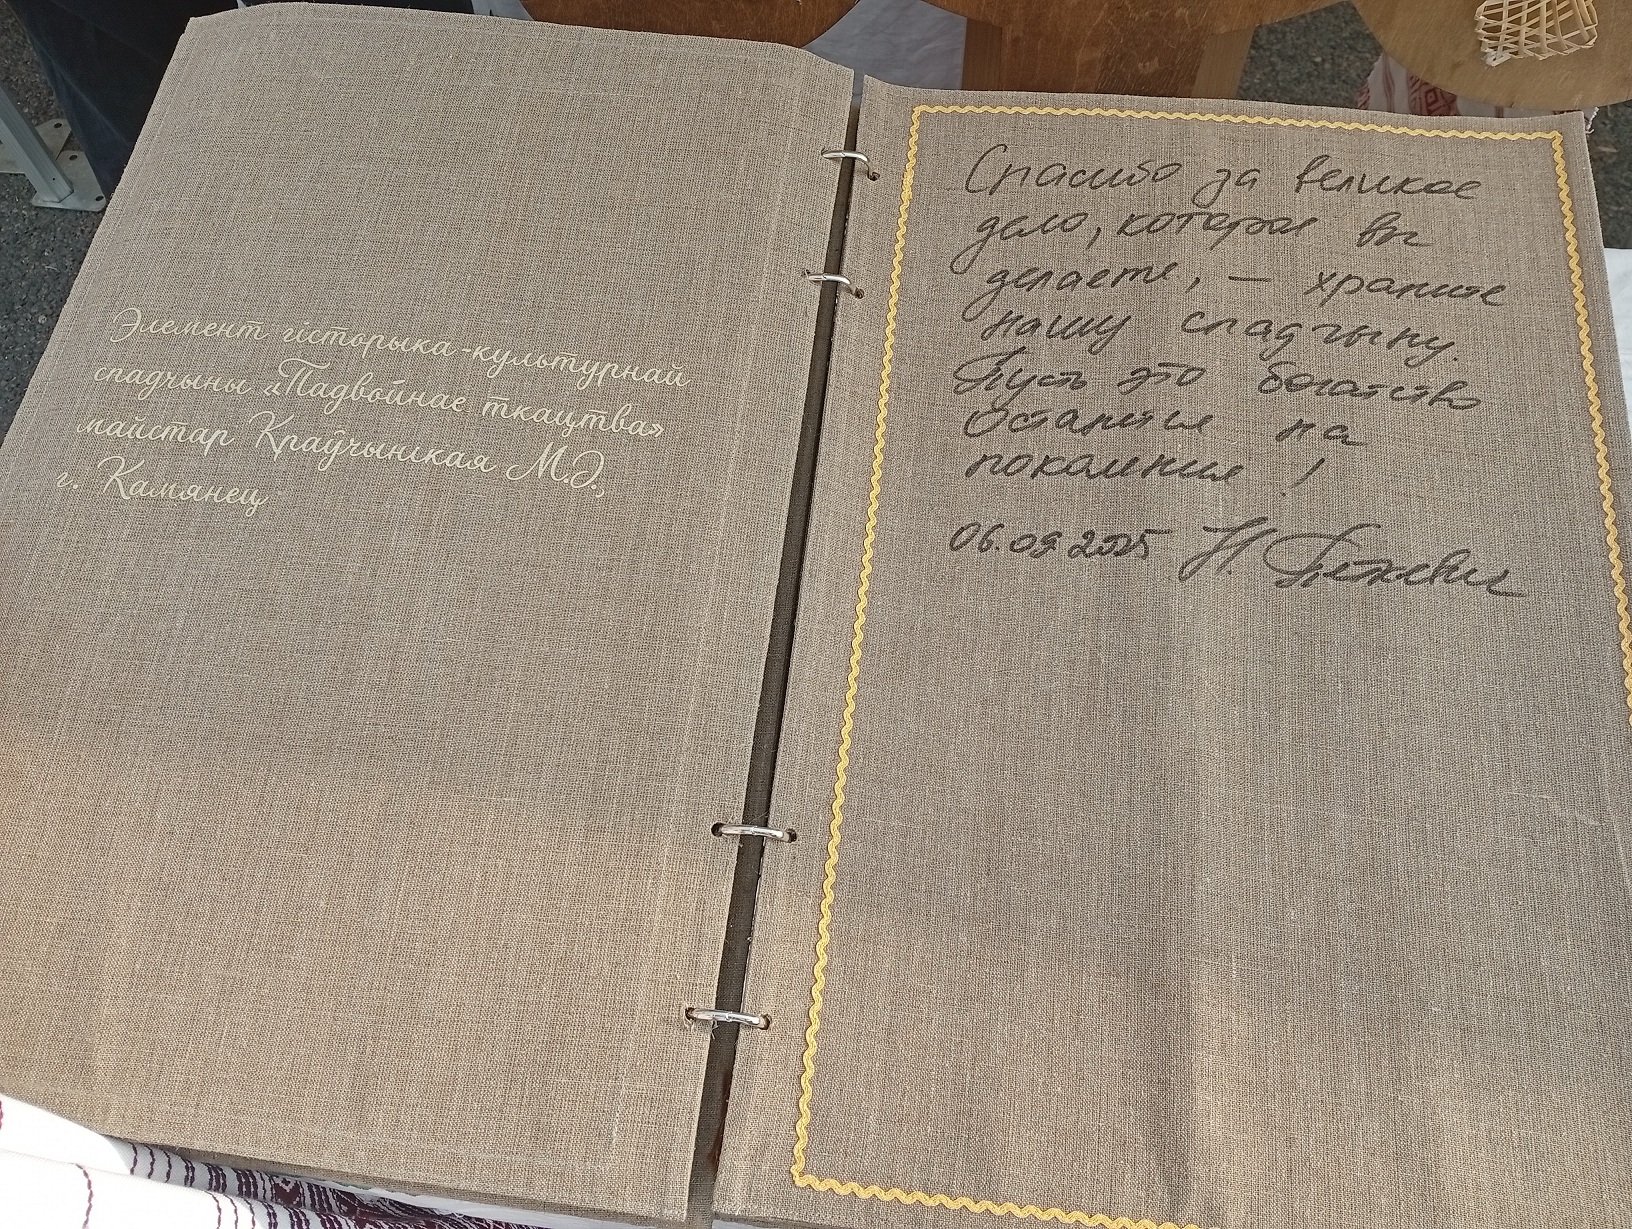 Элемент гісторыка-культурнай
спадчыны «Падвойнае ткацтва»
майстар Краўчынская М.Э.,
г. Камянец
Спасибо за великое
дело, которое вы
делаете, — храните
нашу спадчыну.
Пусть это богатство
останется на
поколения!
06.09.2025 Н.